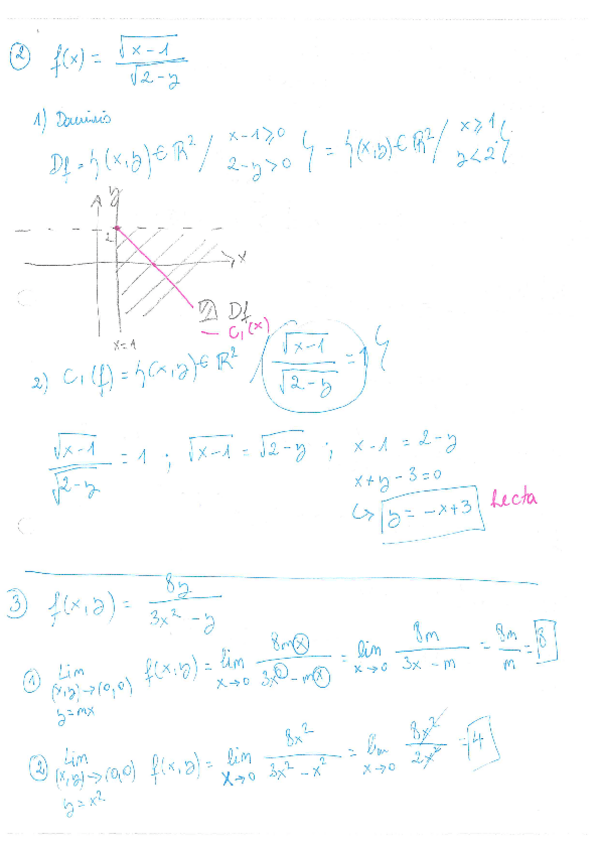 ② f(x) = √(x-1) / √(2-y)
1) Dominio
Df = {(x,y) ∈ ℝ² / x-1 ≥ 0 2-y > 0} = {(x,y) ∈ ℝ² / x ≥ 1 y < 2}
y
2
x
Df
C₁(x)
x=1
2) C₁(f) = {(x,y) ∈ ℝ² / √(x-1) / √(2-y) = 1}
√(x-1) / √(2-y) = 1 ; √(x-1) = √(2-y) ; x-1 = 2-y
x+y-3=0
↳ y = -x+3 Recta
③ f(x,y) = 8y / (3x² - y)
① lim (x,y)→(0,0) y=mx f(x,y) = lim x→0 8mx / (3x² - mx) = lim x→0 8m / (3x - m) = 8m/m = 8
② lim (x,y)→(0,0) y=x² f(x,y) = lim x→0 8x² / (3x² - x²) = lim x→0 8x² / 2x² = 4